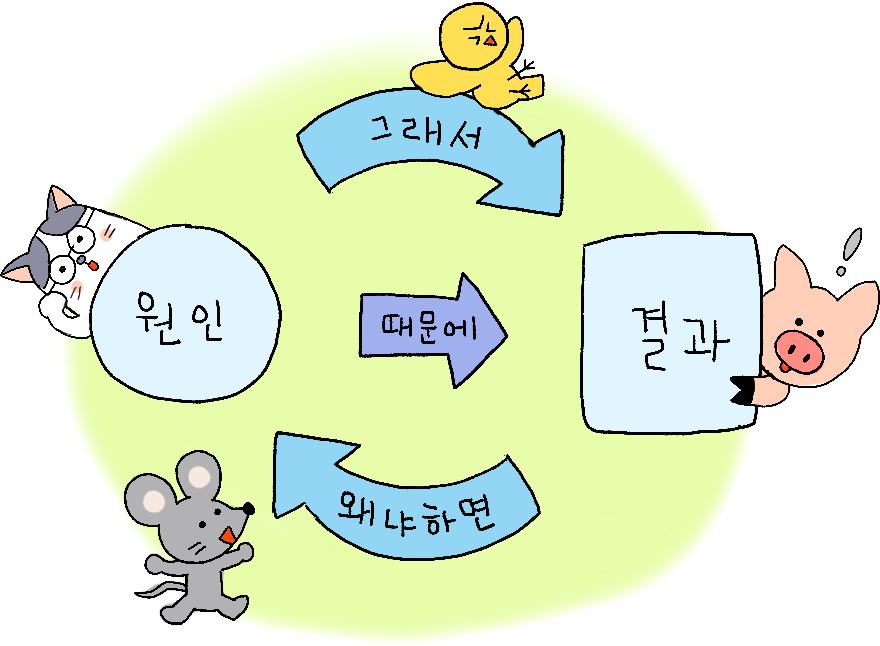 그래서
원인
때문에
결과
왜냐하면